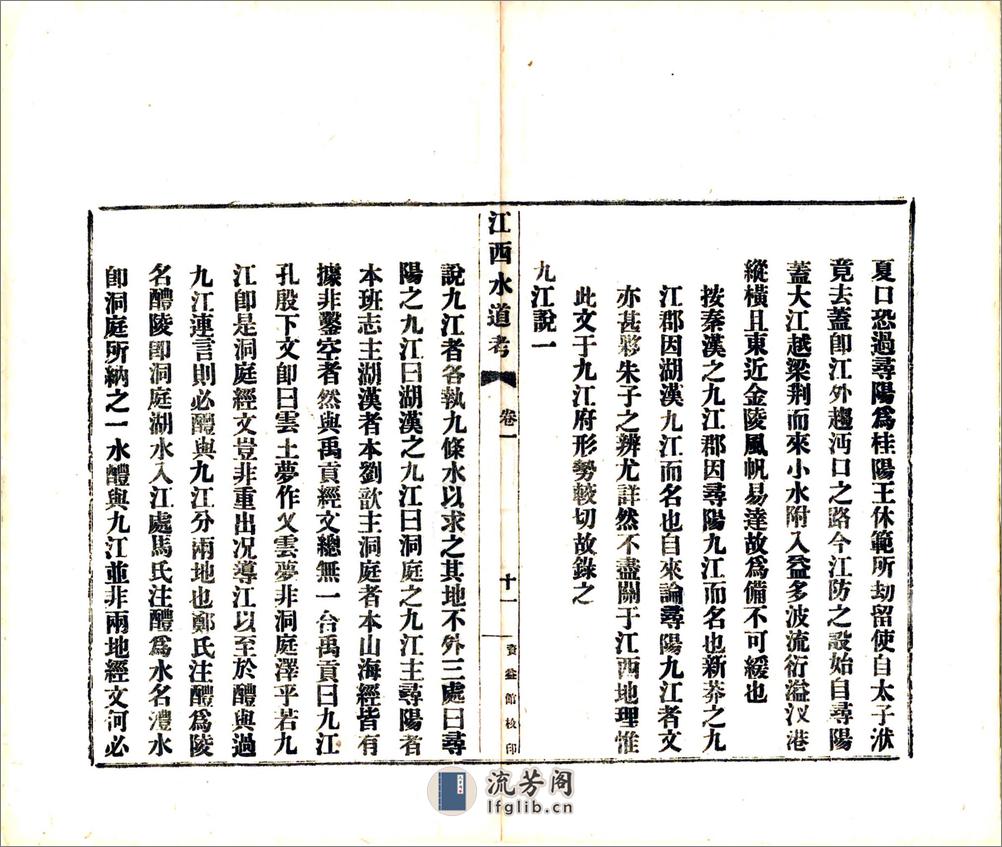 夏口恐過尋陽爲桂陽王休範所劫留使自太子洑
竟去蓋卽江外趨沔口之路今江防之設始自尋陽
蓋大江越梁荆而來小水附入益多波流衍溢汊港
縱橫且東近金陵風帆易達故爲備不可緩也
按秦漢之九江郡因尋陽九江而名也新莽之九
江郡因湖漢九江而名也自來論尋陽九江者文
亦甚夥朱子之辨尤詳然不盡關于江西地理惟
此文于九江府形勢較切故錄之
九江說一
江西水道考
卷一
十一
資益館校印
說九江者各執九條水以求之其地不外三處曰尋
陽之九江曰湖漢之九江曰洞庭之九江主尋陽者
本班志主湖漢者本劉歆主洞庭者本山海經皆有
據非鑿空者然與禹貢經文總無一合禹貢曰九江
孔殷下文卽曰雲土夢作乂雲夢非洞庭澤乎若九
江卽是洞庭經文豈非重出况導江以至於醴與過
九江連言則必醴與九江分兩地也鄭氏注醴爲陵
名醴陵卽洞庭湖水入江處馬氏注醴爲水名澧水
卽洞庭所納之一水醴與九江並非兩地經文何必
流芳阁
lfglib.cn